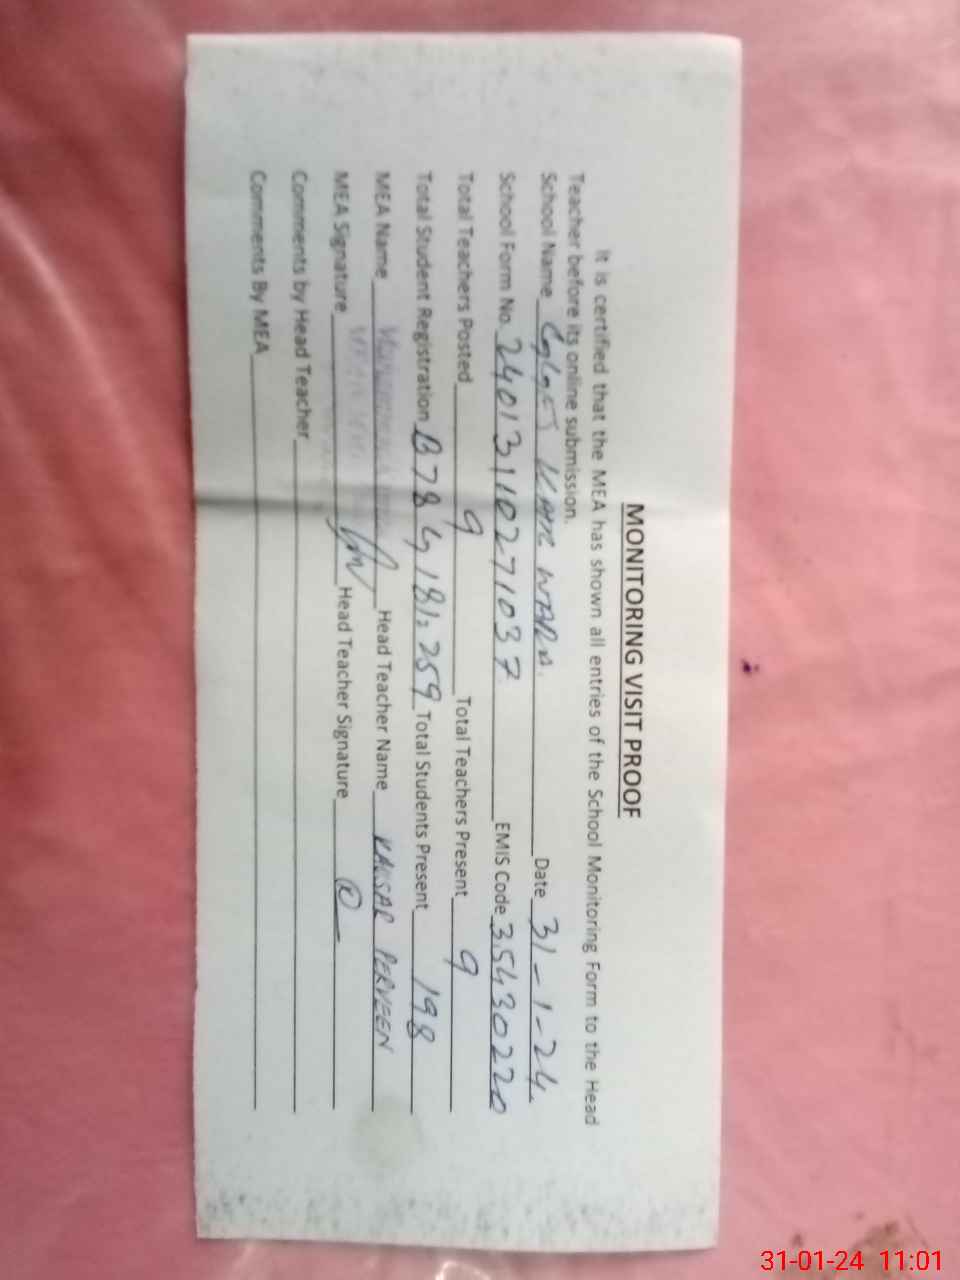 MONITORING VISIT PROOF
It is certified that the MEA has shown all entries of the School Monitoring Form to the Head
Teacher before its online submission.
School Name WARA. Date 31-1-24
School Form No. 24013110271037 EMIS Code 35430220
Total Teachers Posted 9 Total Teachers Present 9
Total Student Registration B78 G 181= 259 Total Students Present 198
MEA Name Head Teacher Name KAUSAR PERVEEN
MEA Signature Head Teacher Signature
Comments by Head Teacher
Comments By MEA
31-01-24 11:01